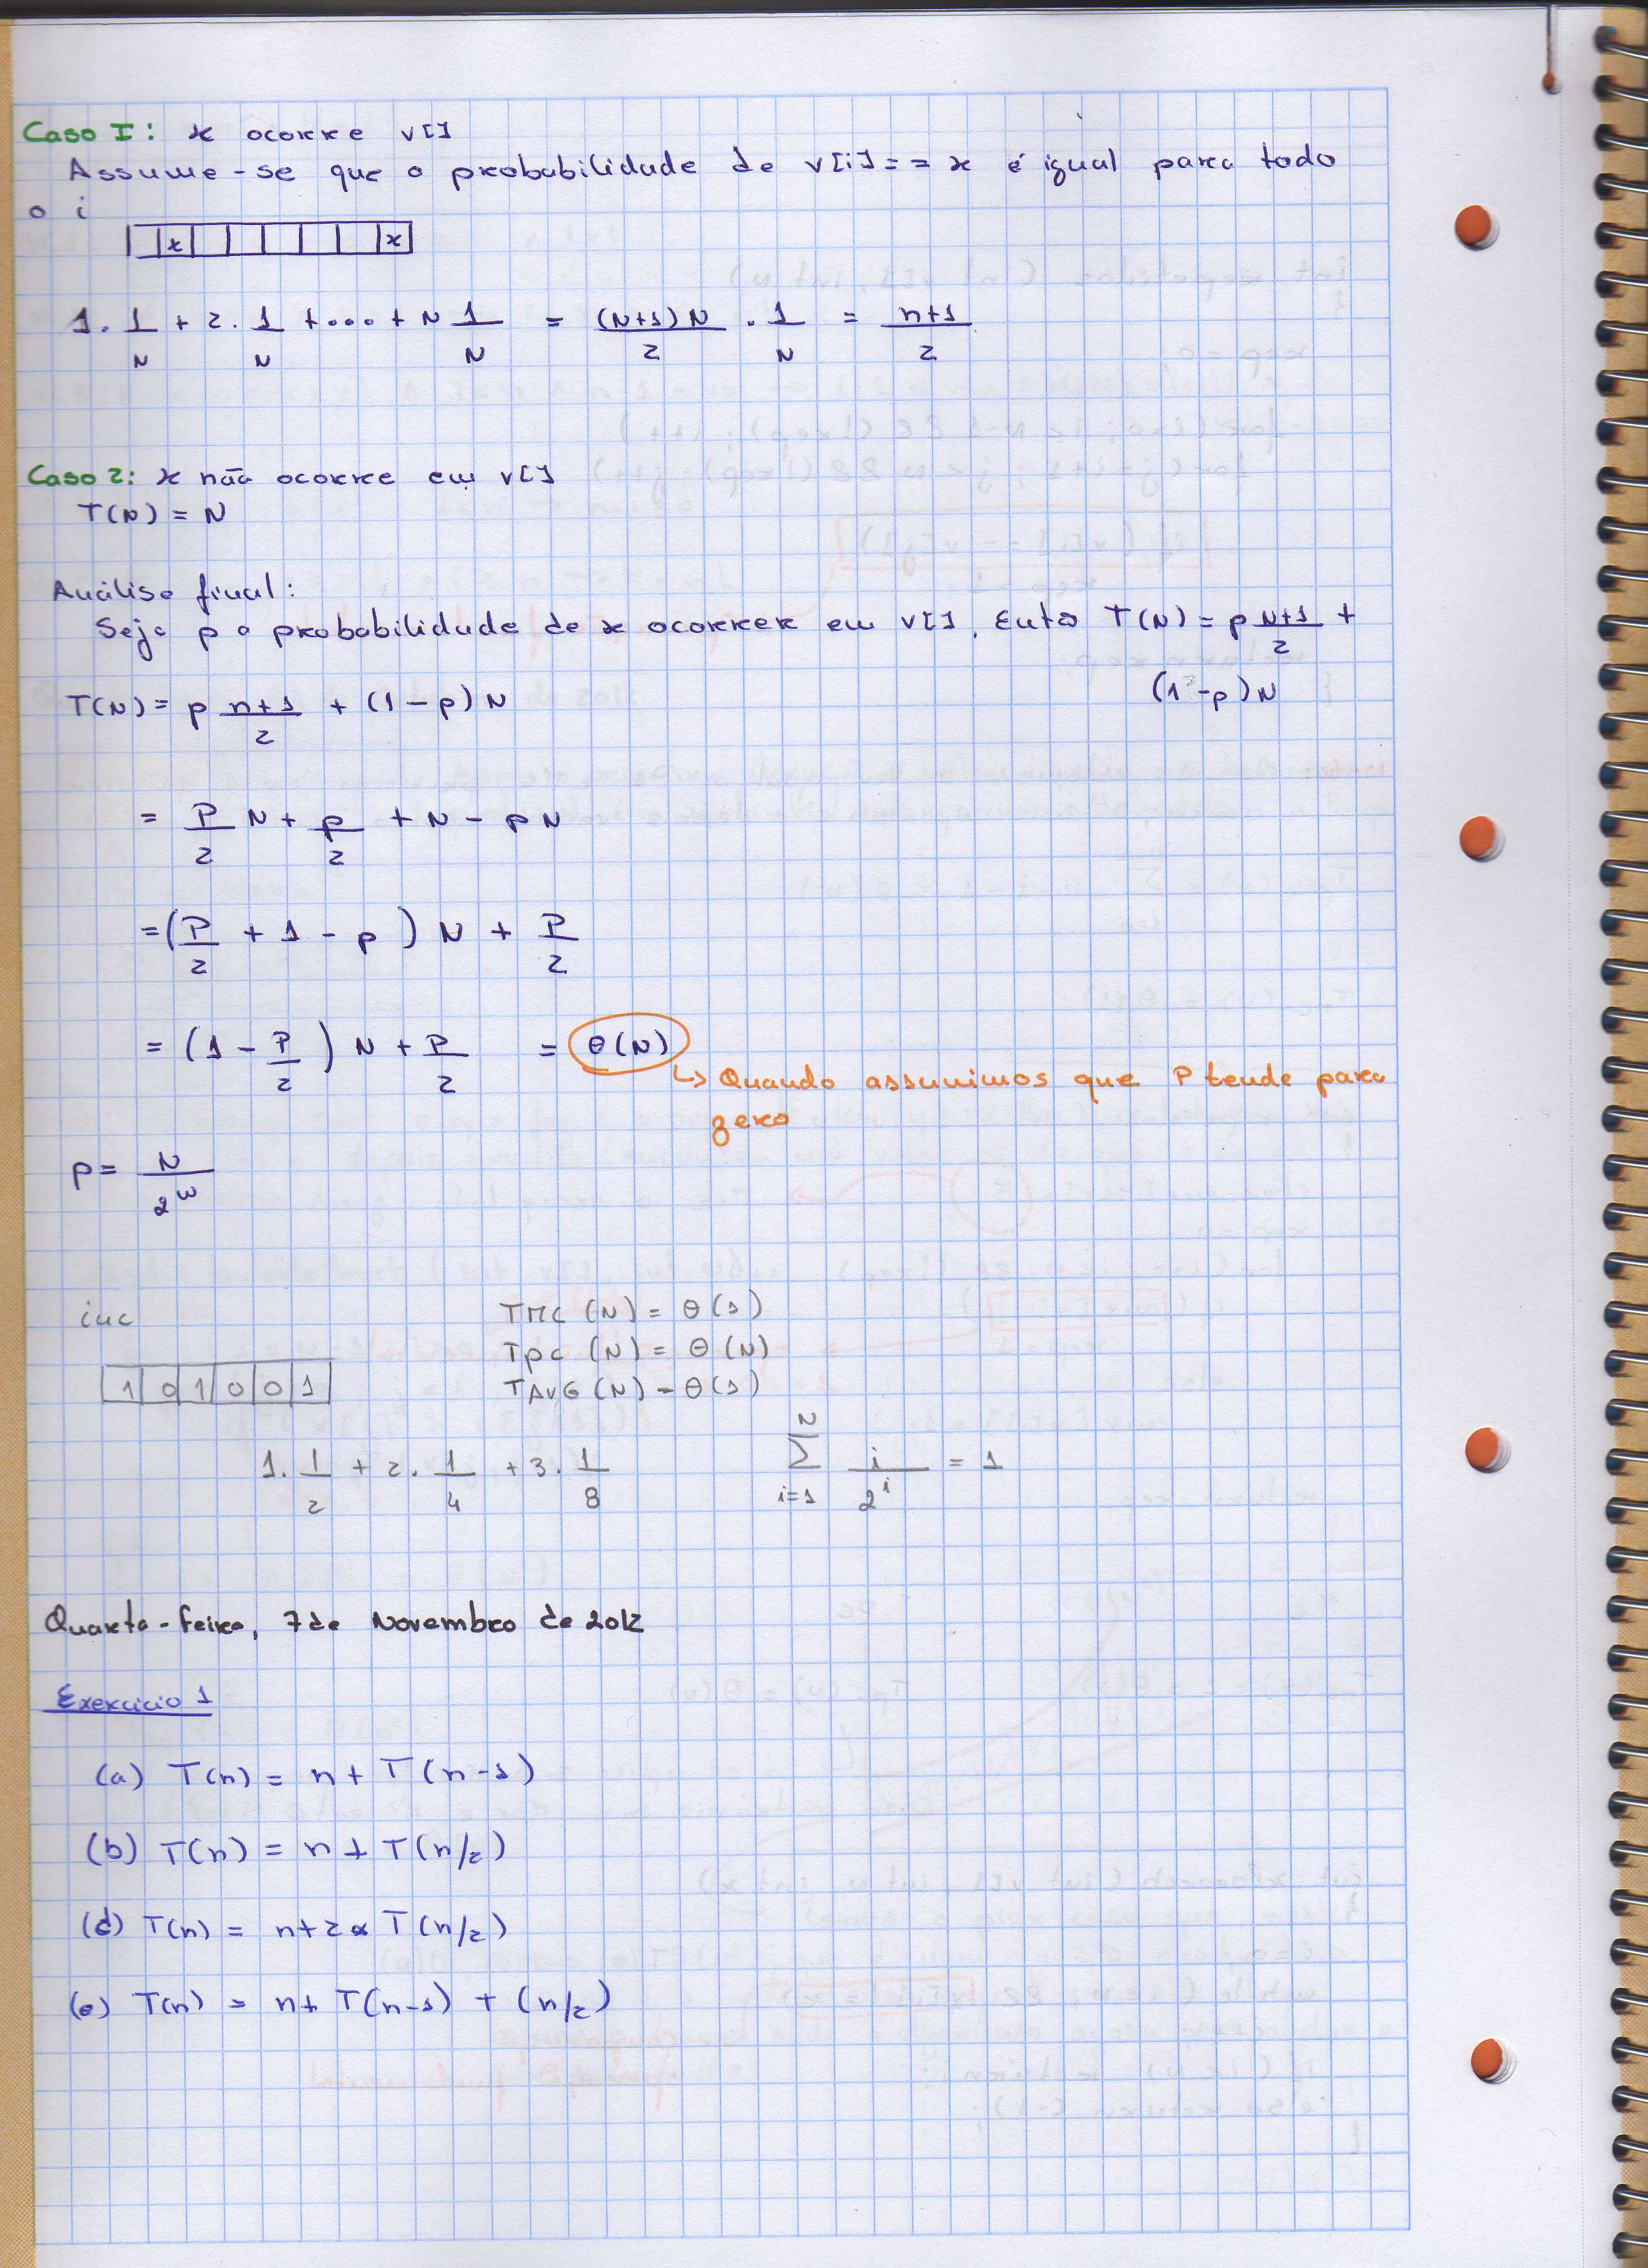 Caso I: x ocorre v[]
Assume-se que a probabilidade de v[i]==x é igual para todo
o i
x x
1. 1/N + 2. 1/N +...+ N 1/N = (N+1)N/2 . 1/N = n+1/2
Caso 2: x não ocorre em v[]
T(N) = N
Análise final:
Seja p a probabilidade de x ocorrer em v[]. Então T(N) = p N+1/2 +
(1-p)N
T(N) = p n+1/2 + (1-p)N
= P/2 N + p/2 + N - pN
= (P/2 + 1 - p) N + P/2
= (1 - P/2) N + P/2 = θ(N)
↳ Quando assumimos que P tende para
zero
p = N/2^w
inc
TMC (N) = θ(1)
Tpc (N) = θ(N)
1 0 1 0 0 1
TAVG (N) = θ(1)
1. 1/2 + 2. 1/4 + 3. 1/8
N ∑ i=1 i/2^i = 1
Quarta-feira, 7 de Novembro de 2012
Exercicio 1
(a) T(n) = n + T(n-1)
(b) T(n) = n + T(n/2)
(d) T(n) = n+2* T(n/2)
(e) T(n) = n+ T(n-1) + (n/2)